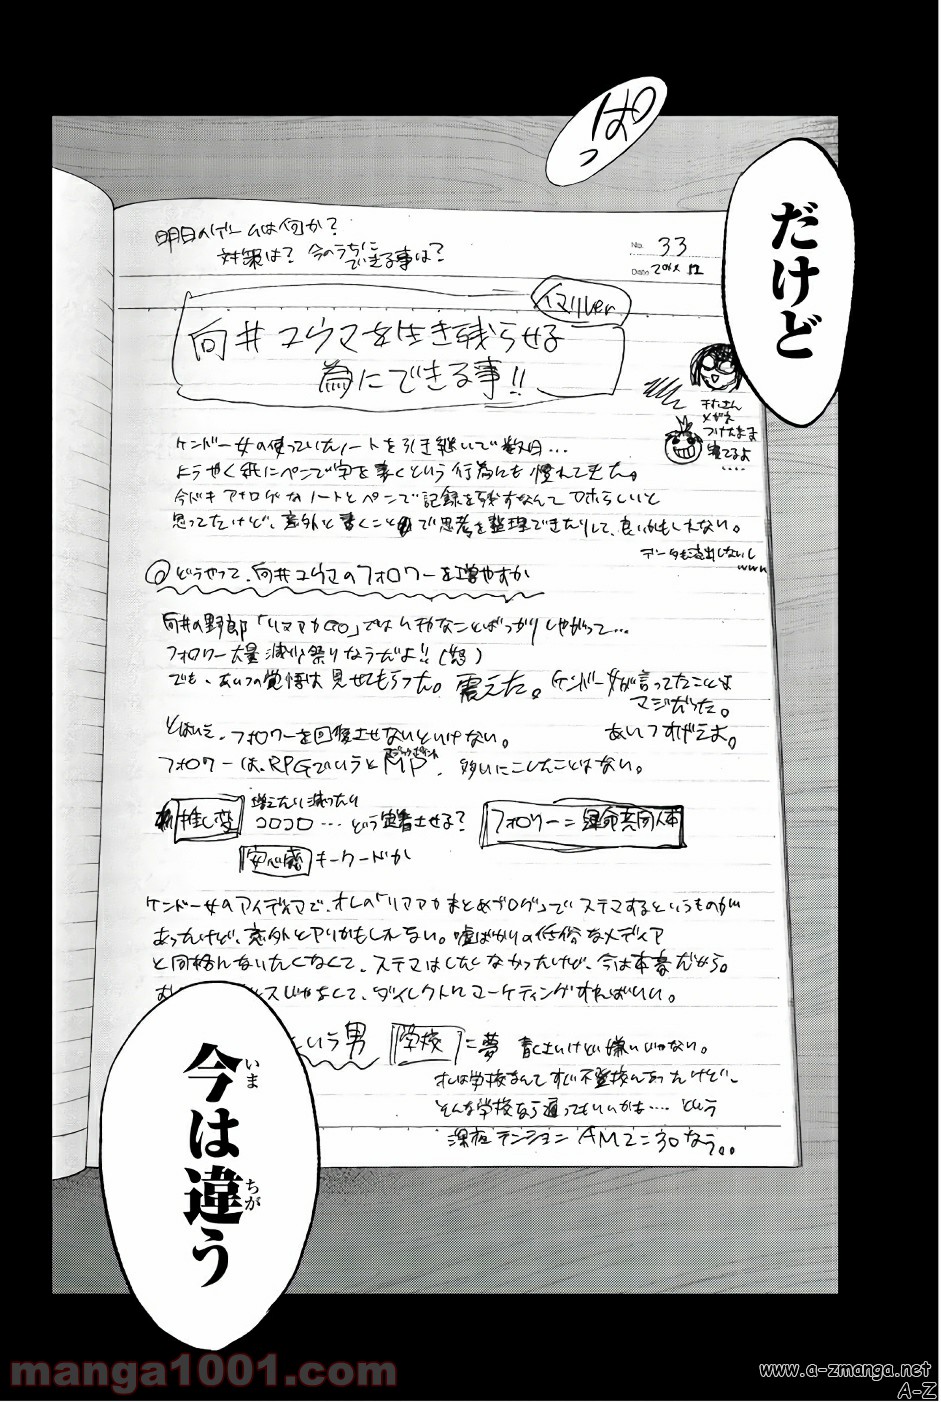 ぱっ
だけど
明日のゲームは何か?
対策は? 今のうちに
できる事は?
No. 33
Date
イマリver
向井ユウマを生き残らせる
為にできる事!!
メガネ
つけたまま
寝てるよ
....
ケンドー女の使っていたノートを引き継いで数日…
ようやく紙にペンで字を書くという行為にも慣れてきた。
今どきアナログなノートとペンで記録を残すなんてアホらしいと
思ってたけど、意外と書くことで思考を整理できたりして、良いかもしれない。
データも流出しないし
www
◎どうやって、向井ユウマのフォロワーを増やすか
向井の野郎「リアアカGO」では
なことばっかりしやがって…
フォロワー大量減少祭りなうだよ!!(怒)
でも、あいつの覚悟は見せてもらった。震えた。ケンドー女が言ってたことは
マジだった。
あいつすげえよ。
とはいえ、フォロワーを回復させないといけない。
フォロワーは、RPGでいうとMP、多いにこしたことはない。
マジックポイント
推し変
増えたり減ったり
コロコロ…どう定着させる?
フォロワー=運命共同体
安心感 キーワードか
ケンドー女のアイディアで、オレの「リアアカまとめブログ」でステマするというものが
あったけど、意外とアリかもしれない。嘘ばかりの低俗なメディア
と同格になりたくなくて、ステマはしたくなかったけど、今は本音だから。
じゃなくて、ダイレクトにマーケティングすればいい。
という男 学校に夢 青くさいけど嫌いじゃない。
オレは学校なんてすぐ不登校になったけど、
そんな学校なら通ってもいいかも…. という
深夜テンション AM2:30なう。。
今は違う
いま
ちが
manga1001.com
www.a-zmanga.net
A-Z